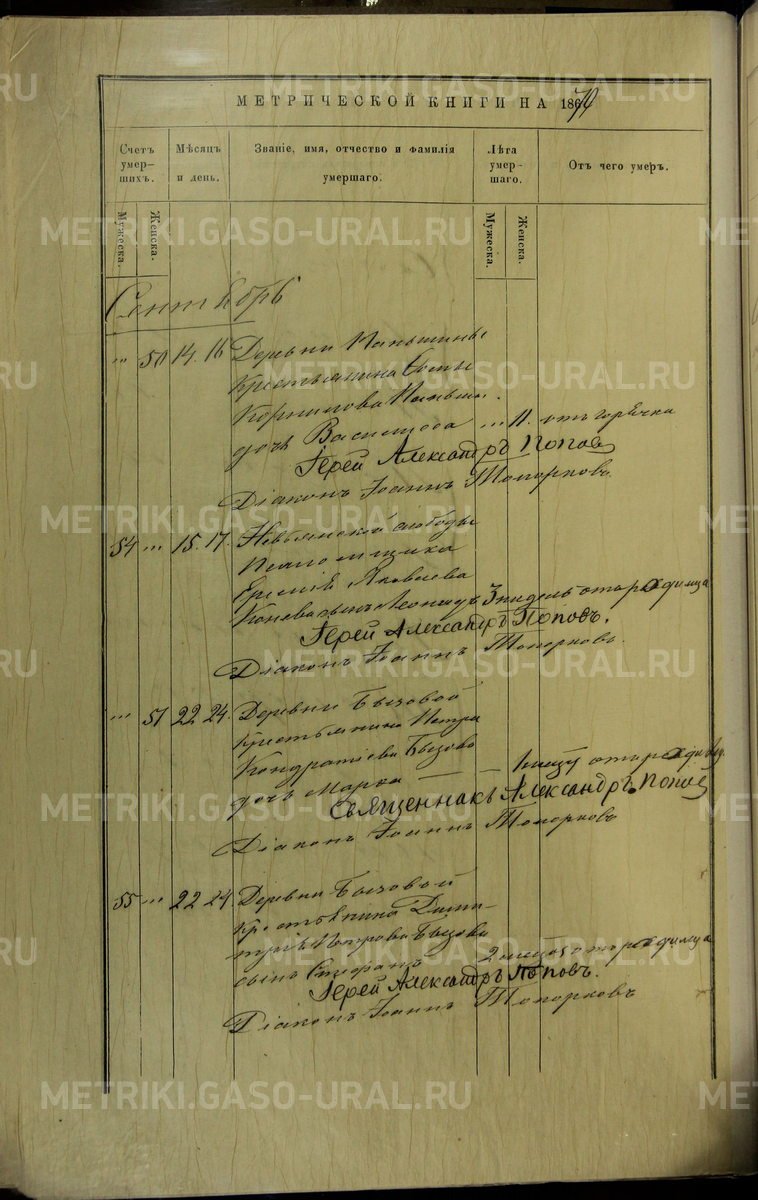 METRIKI.GASO-URAL.RU
МЕТРИЧЕСКОЙ КНИГИ НА 1870
Счетъ умер-шихъ.
Мѣсяцъ и день.
Званіе, имя, отчество и фамилія умершаго.
Лѣта умер-шаго.
Отъ чего умеръ.
Мужеска.
Женска.
Мужеска.
Женска.
Сентябрь
" 50 14. 16 Деревни
Крестьянина
дочь Василиса ... 11. отъ горячки
Іерей Александръ Поповъ
Діаконъ Іоаннъ Топорковъ
54 " 15. 17. Невьянской слободы
Яковлева
Леонидъ 3 недель отъ родимца
Іерей Александръ Поповъ.
Діаконъ Іоаннъ Топорковъ.
" 51 22 24. Деревни Бызовой
Крестьянина Петра
Кондратіева Бызова
дочь
Священникъ Александръ Поповъ
Діаконъ Іоаннъ Топорковъ
55 " 22 24. Деревни Бызовой
Крестьянина Дими-
трія Петрова Бызова
сынъ Стефанъ 2 отъ родимца
Іерей Александръ Поповъ.
Діаконъ Іоаннъ Топорковъ